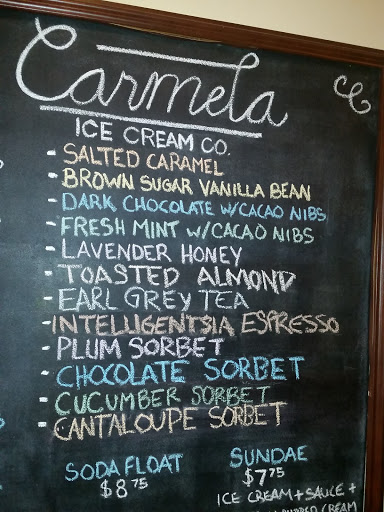 Carmela
ICE CREAM CO.
- SALTED CARAMEL
- BROWN SUGAR VANILLA BEAN
- DARK CHOCOLATE W/CACAO NIBS
- FRESH MINT W/CACAO NIBS
- LAVENDER HONEY
- TOASTED ALMOND
- EARL GREY TEA
- INTELLIGENTSIA ESPRESSO
- PLUM SORBET
- CHOCOLATE SORBET
- CUCUMBER SORBET
- CANTALOUPE SORBET
SODA FLOAT
$8.75
SUNDAE
$7.75
ICE CREAM + SAUCE +
CREAM